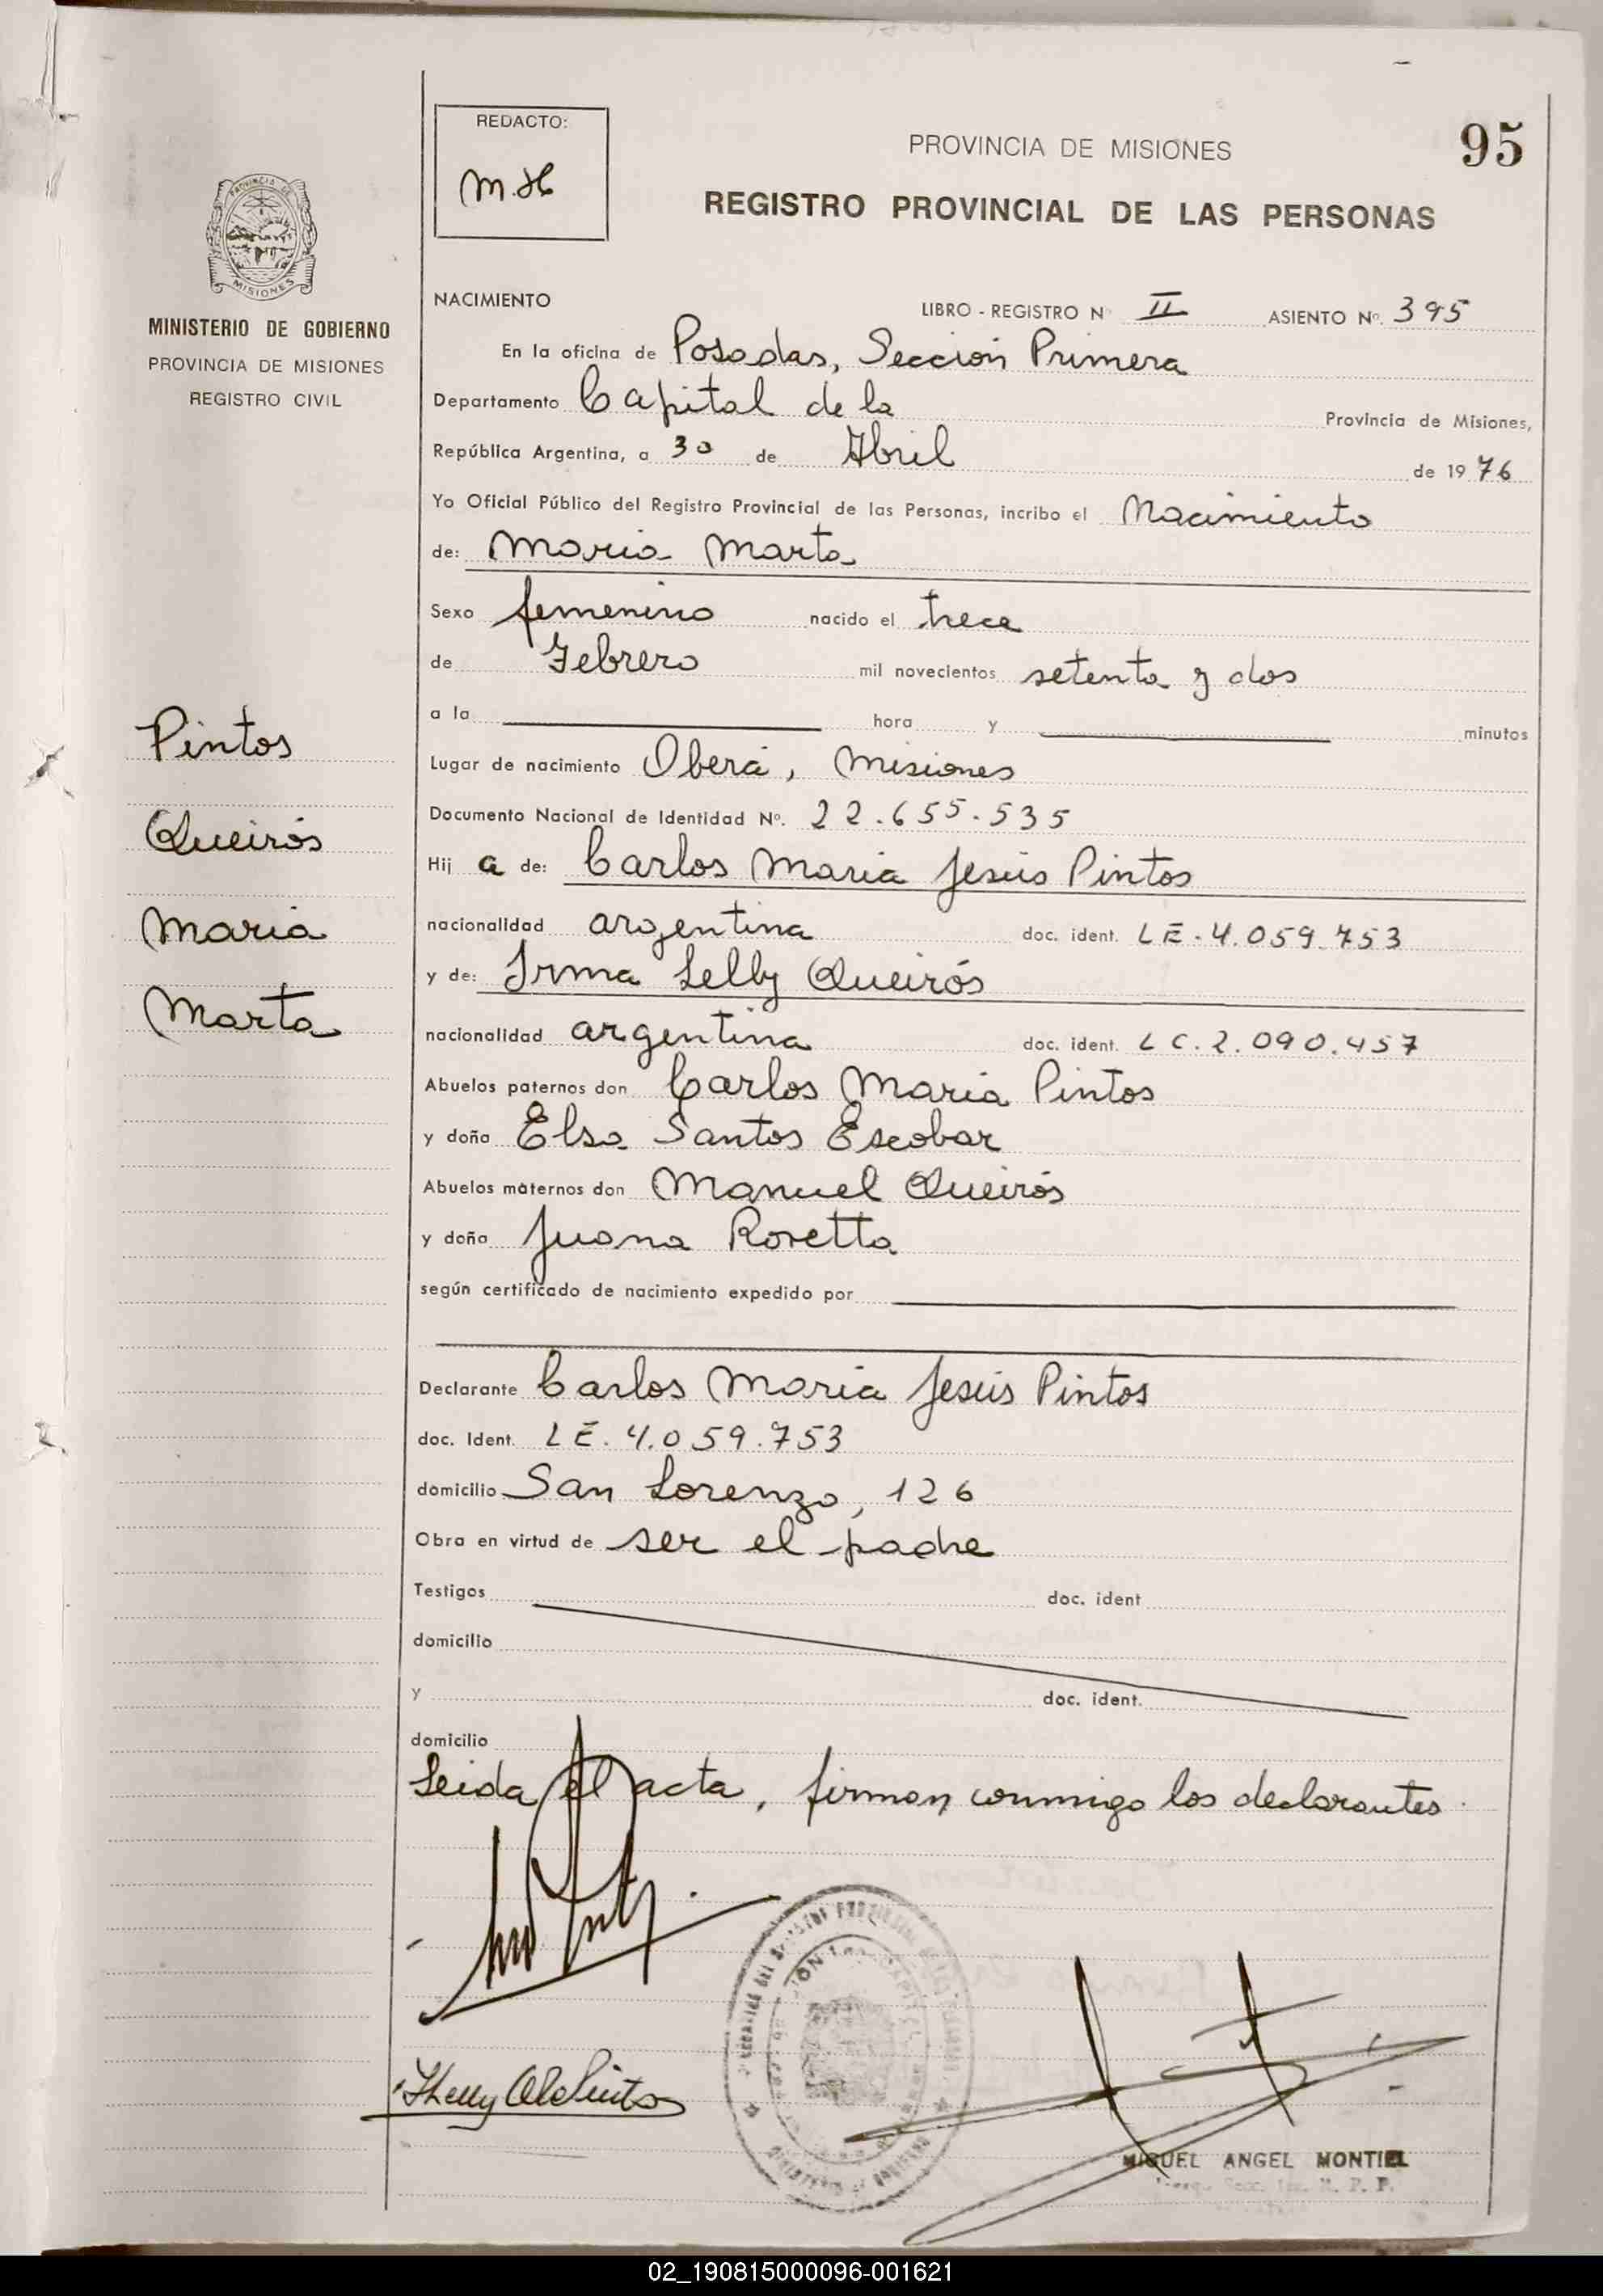 REDACTO:
M.H
PROVINCIA DE MISIONES
95
REGISTRO PROVINCIAL DE LAS PERSONAS
PROVINCIA DE
MISIONES
MINISTERIO DE GOBIERNO
PROVINCIA DE MISIONES
REGISTRO CIVIL
Pintos
Queirós
Maria
Marta
NACIMIENTO
LIBRO - REGISTRO Nº II ASIENTO Nº. 395
En la oficina de Posadas, Sección Primera
Departamento Capital de la Provincia de Misiones,
República Argentina, a 30 de Abril de 1976
Yo Oficial Público del Registro Provincial de las Personas, incribo el Nacimiento
de: Maria Marta
Sexo femenino nacido el trece
de Febrero mil novecientos setenta y dos
a la hora y minutos
Lugar de nacimiento Oberá, Misiones
Documento Nacional de Identidad Nº. 22.655.535
Hij a de: Carlos Maria Jesús Pintos
nacionalidad argentina doc. ident. LE.4.059.753
y de: Irma Lelly Queirós
nacionalidad argentina doc. ident. LC.2.090.457
Abuelos paternos don Carlos Maria Pintos
y doña Elsa Santos Escobar
Abuelos maternos don Manuel Queirós
y doña Juana Rovetta
según certificado de nacimiento expedido por
Declarante Carlos Maria Jesús Pintos
doc. Ident. LE. 4.059.753
domicilio San Lorenzo, 126
Obra en virtud de ser el padre
Testigos doc. ident
domicilio
y doc. ident.
domicilio
Leida el acta, firman conmigo los declarantes.
MIGUEL ANGEL MONTIEL
02_190815000096-001621